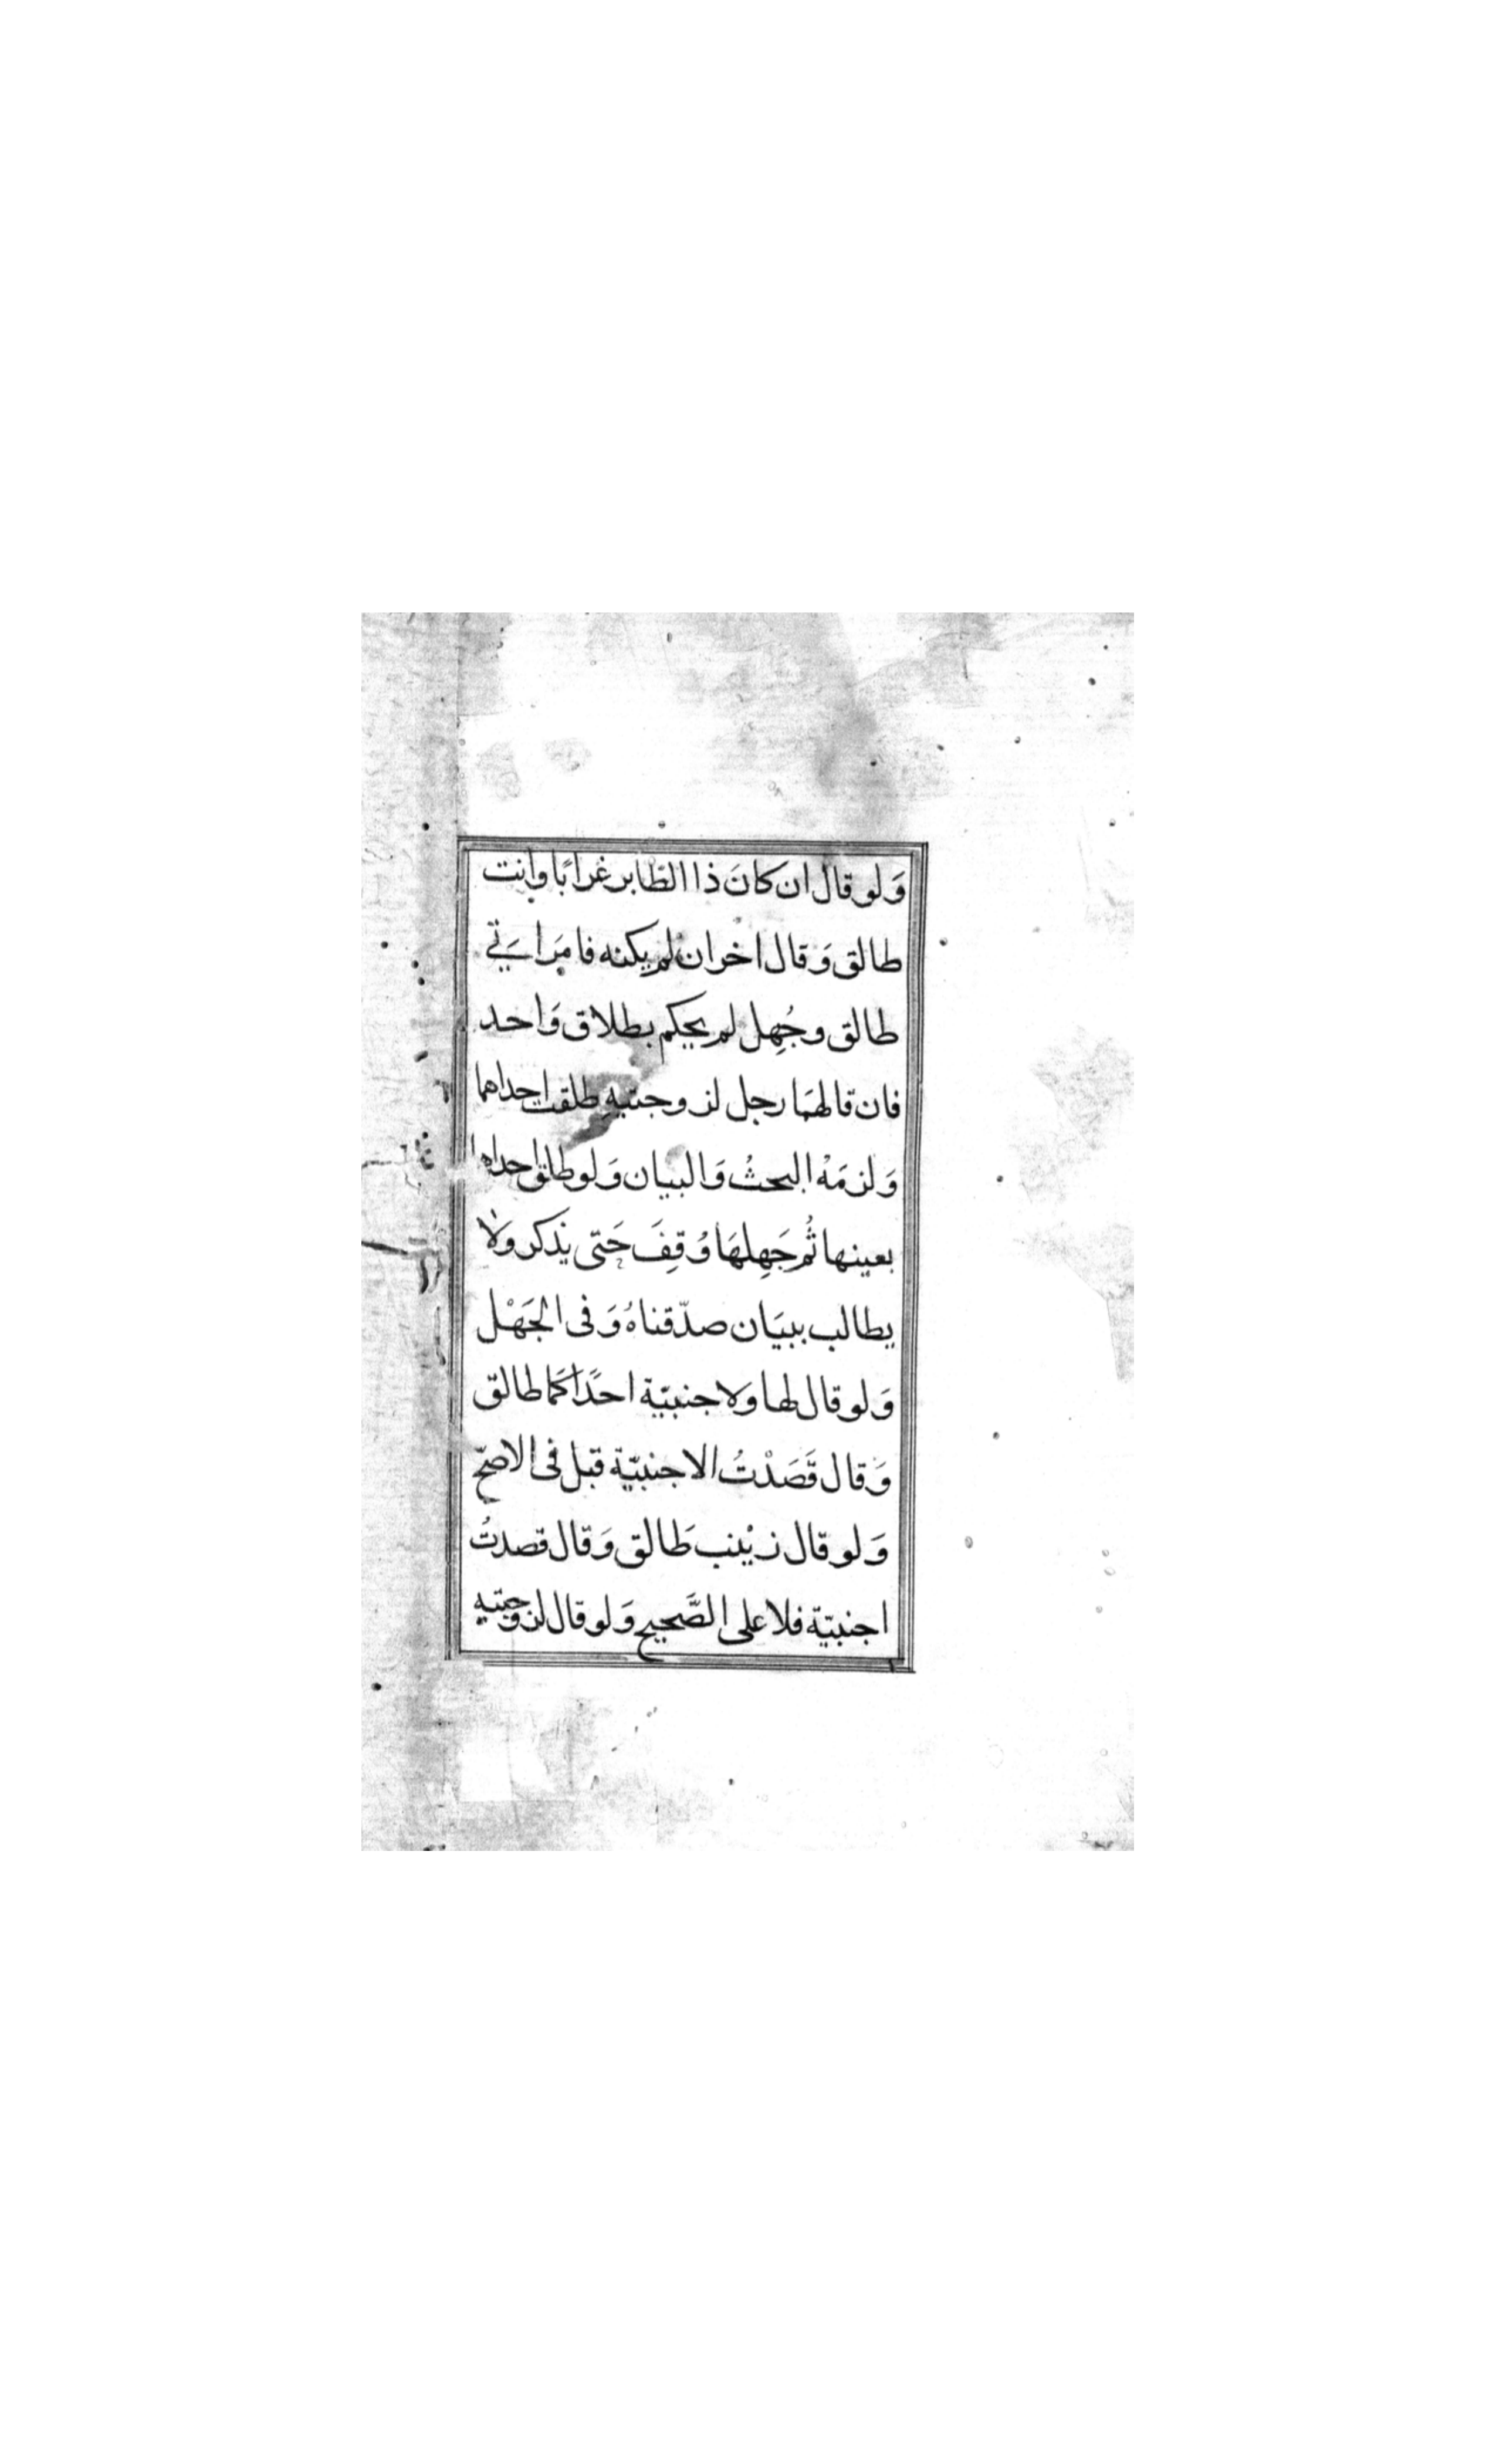 وَلو قال ان كانَ ذا الطّاير غرابًا وانت
طالق وَقال اخر ان لم يكنه فامَراَتي
طالق وجُهِل لم يحكم بطلاق وَاحد
فان قالهمَا رجل لزوجتيهِ طلقت احداهما
وَلزمَهْ البحثُ وَالبيان وَلو طلق احداهما
بعينها ثُم جَهِلهَا وُقِفَ حَتّى يذكر ولا
يطالب ببيَان صدّقناهُ وَفى الجَهْل
وَلو قال لها ولاجنبيّة احدَاكمَا طالق
وَقال قَصَدْتُ الاجنبيّة قبل فى الاصحّ
وَلو قال زيْنب طَالق وَقال قصدتُ
اجنبيّة فلا على الصَّحيح وَلو قال لزوجتيه